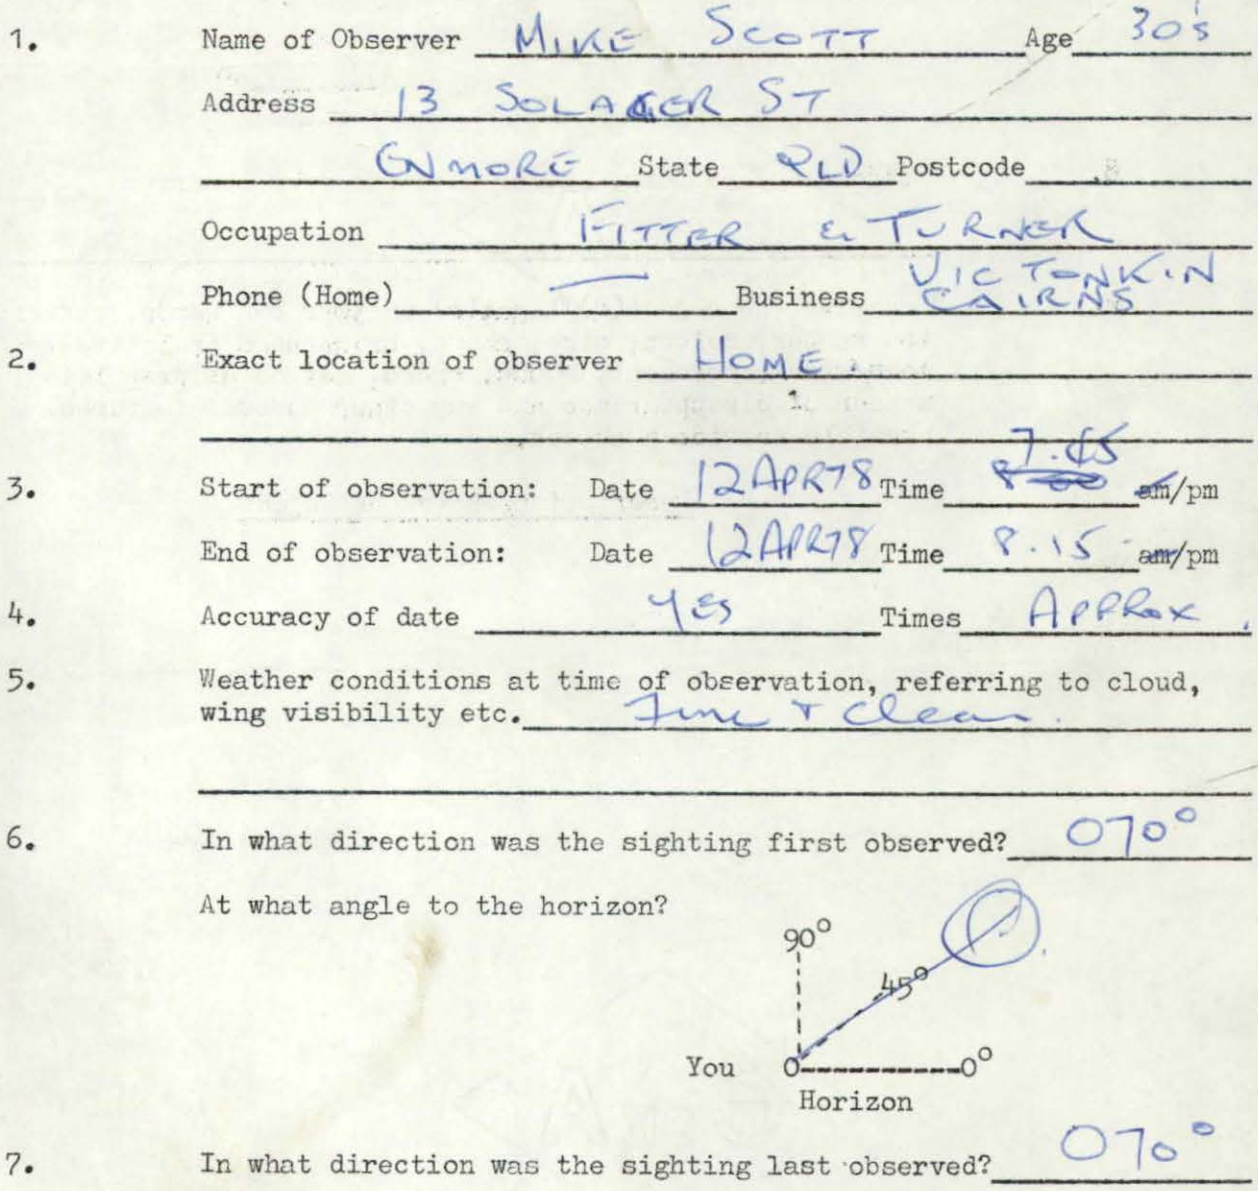 1. Name of Observer MIKE SCOTT Age 30's
Address 13 ST
State QLD Postcode
Occupation FITTER & TURNER
Phone (Home) — Business VIC TONKIN CAIRNS
2. Exact location of observer HOME.
3. Start of observation: Date 12 APR 78 Time 7.45 am/pm
End of observation: Date 12 APR 78 Time 8.15 am/pm
4. Accuracy of date YES Times APPROX.
5. Weather conditions at time of observation, referring to cloud,
wing visibility etc. Fine + Clear.
6. In what direction was the sighting first observed? 070°
At what angle to the horizon?
90°
45°
You 0 0°
Horizon
7. In what direction was the sighting last observed? 070°